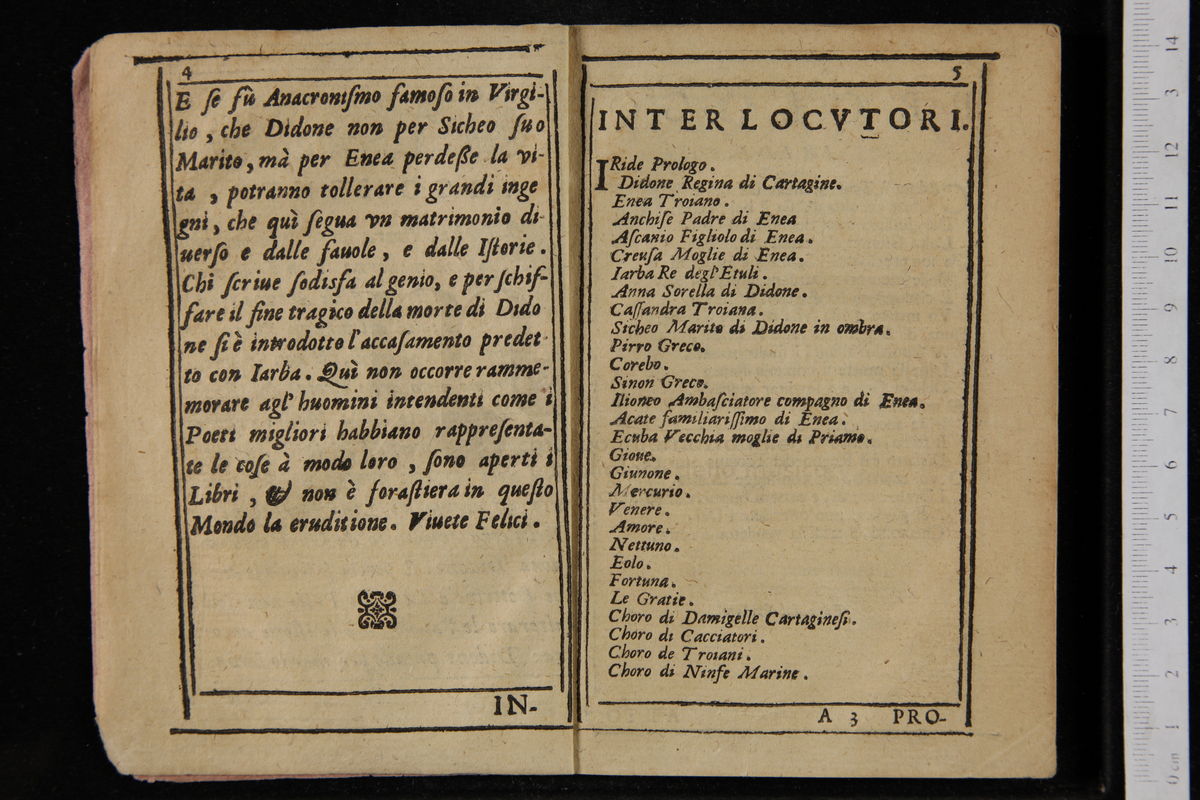 4
E ſe fù Anacroniſmo famoſo in Virgi-
lio, che Didone non per Sicheo ſuo
Marito, mà per Enea perdeſſe la vi-
ta, potranno tollerare i grandi inge
gni, che quì ſegua vn matrimonio di-
uerſo e dalle fauole, e dalle Iſtorie.
Chi ſcriue ſodisfa al genio, e per ſchif-
fare il fine tragico della morte di Dido
ne ſi è introdotto l'accaſamento predet-
to con Iarba. Quì non occorre ramme-
morare agl'huomini intendenti come i
Poeti migliori habbiano rappreſenta-
te le coſe à modo loro, ſono aperti i
Libri, & non è foraſtiera in queſto
Mondo la eruditione. Viuete Felici.
IN-
5
INTERLOCVTORI.
IRide Prologo.
Didone Regina di Cartagine.
Enea Troiano.
Anchiſe Padre di Enea
Aſcanio Figliolo di Enea.
Creuſa Moglie di Enea.
Iarba Re degl'Etuli.
Anna Sorella di Didone.
Caſſandra Troiana.
Sicheo Marito di Didone in ombra.
Pirro Greco.
Corebo.
Sinon Greco.
Ilioneo Ambaſciatore compagno di Enea.
Acate familiariſſimo di Enea.
Ecuba Vecchia moglie di Priamo.
Gioue.
Giunone.
Mercurio.
Venere.
Amore.
Nettuno.
Eolo.
Fortuna.
Le Gratie.
Choro di Damigelle Cartagineſi.
Choro di Cacciatori.
Choro de Troiani.
Choro di Ninfe Marine.
A 3 PRO-
14
3
12
11
10
9
8
7
6
5
4
3
2
1
0 cm